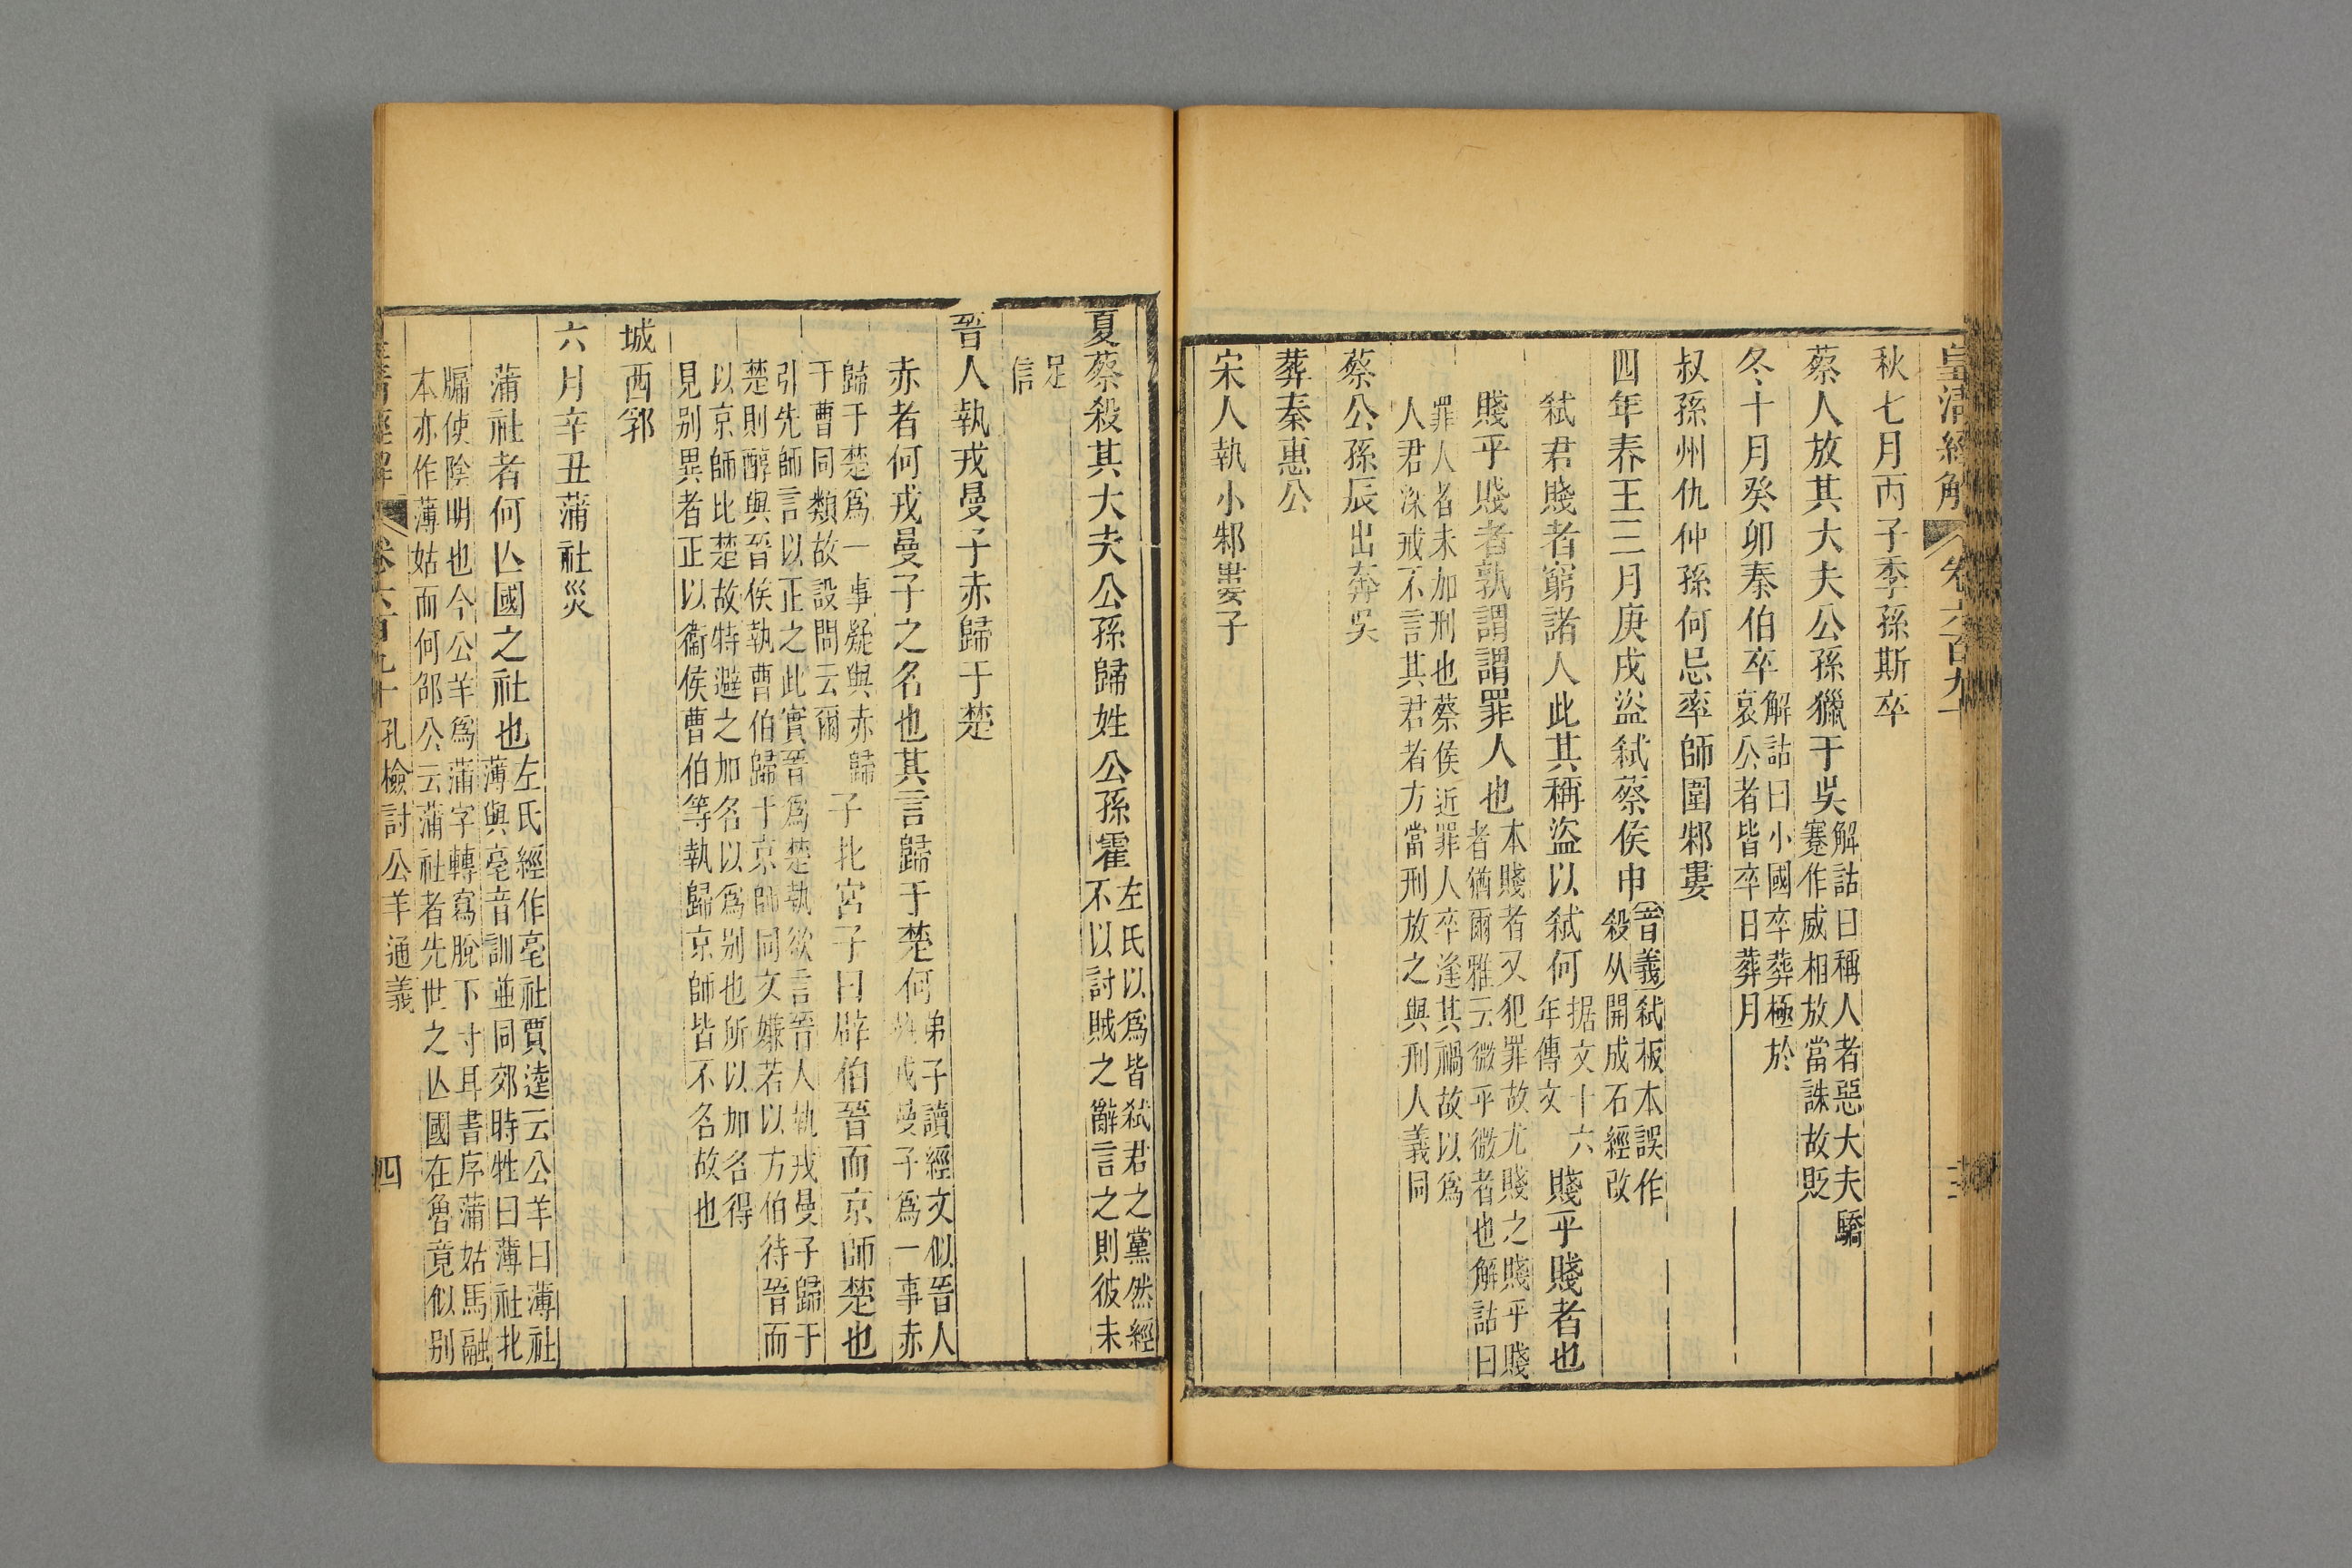 皇清經解 卷六百九十
秋七月丙子季孫斯卒
蔡人放其大夫公孫獵于吳解詁曰稱人者惡大夫驕
蹇作威相放當誅故貶
冬十月癸卯秦伯卒解詁曰小國卒葬極於
哀公者皆卒日葬月
叔孫州仇仲孫何忌率師圍邾婁
四年春王三月庚戌盜弒蔡侯申音義弒板本誤作
殺从開成石經改
弒君賤者窮諸人此其稱盜以弒何据文十六
年傳文賤乎賤者也
賤乎賤者孰謂謂罪人也本賤者又犯罪故尤賤之賤乎賤
者猶爾雅云微乎微者也解詁曰
罪人者未加刑也蔡侯近罪人卒逢其禍故以爲
人君深戒不言其君者方當刑放之與刑人義同
蔡公孫辰出奔吳
葬秦惠公
宋人執小邾婁子
夏蔡殺其大夫公孫歸姓公孫霍左氏以爲皆弒君之黨然經
不以討賊之辭言之則彼未
足
信
晉人執戎曼子赤歸于楚
赤者何戎曼子之名也其言歸于楚何弟子讀經文似晉人
執戎曼子爲一事赤
歸于楚爲一事疑與赤歸
于曹同類故設問云爾子北宮子曰辟伯晉而京師楚也
引先師言以正之此實晉爲楚執欲言晉人執戎曼子歸于
楚則醇與晉侯執曹伯歸于京師同文嫌若以方伯待晉而
以京師比楚故特避之加名以爲别也所以加名得
見别異者正以衞侯曹伯等執歸京師皆不名故也
城西郛
六月辛丑蒲社災
蒲社者何亾國之社也左氏經作亳社賈逵云公羊曰薄社
薄與亳音訓並同郊時牲曰薄社北
牖使陰明也今公羊爲蒲字轉寫脫下寸耳書序蒲姑馬融
本亦作薄姑而何邵公云蒲社者先世之亾國在魯竟似别
卷六百九十 孔檢討公羊通義 四